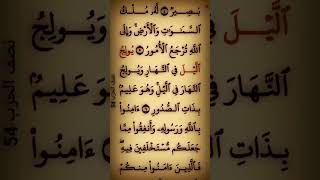 بَصِيرٌ ٤ لَّهُۥ مُلْكُ
ٱلسَّمَٰوَٰتِ وَٱلْأَرْضِۚ وَإِلَى
ٱللَّهِ تُرْجَعُ ٱلْأُمُورُ ٥ يُولِجُ
ٱلَّيْلَ فِى ٱلنَّهَارِ وَيُولِجُ
ٱلنَّهَارَ فِى ٱلَّيْلِۚ وَهُوَ عَلِيمٌۢ
بِذَاتِ ٱلصُّدُورِ ٦ ءَامِنُوا۟
بِٱللَّهِ وَرَسُولِهِۦ وَأَنفِقُوا۟ مِمَّا
جَعَلَكُم مُّسْتَخْلَفِينَ فِيهِۖ
فَٱلَّذِينَ ءَامَنُوا۟ مِنكُمْ
نصف الحزب 54